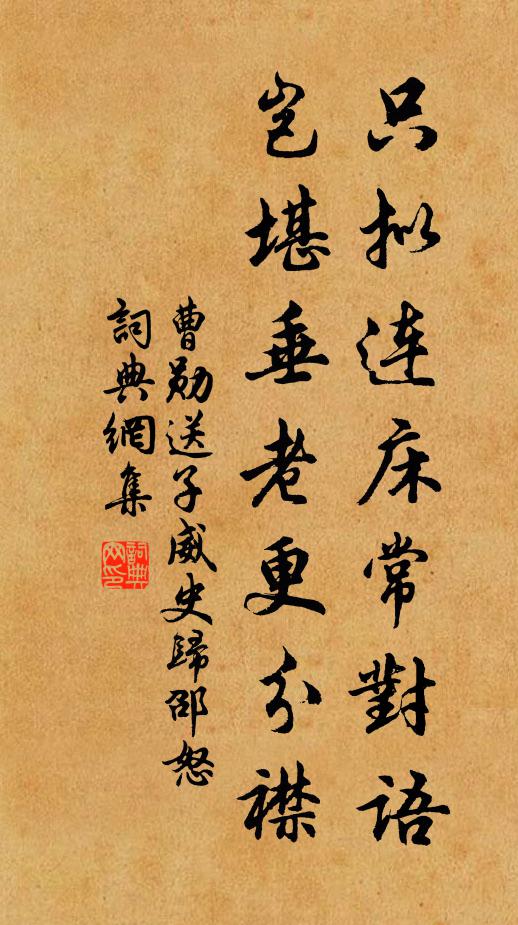 只拟连床常對語
岂堪垂老更分襟
曹勋送子威史歸邵怒
詞典網集
詞典網印